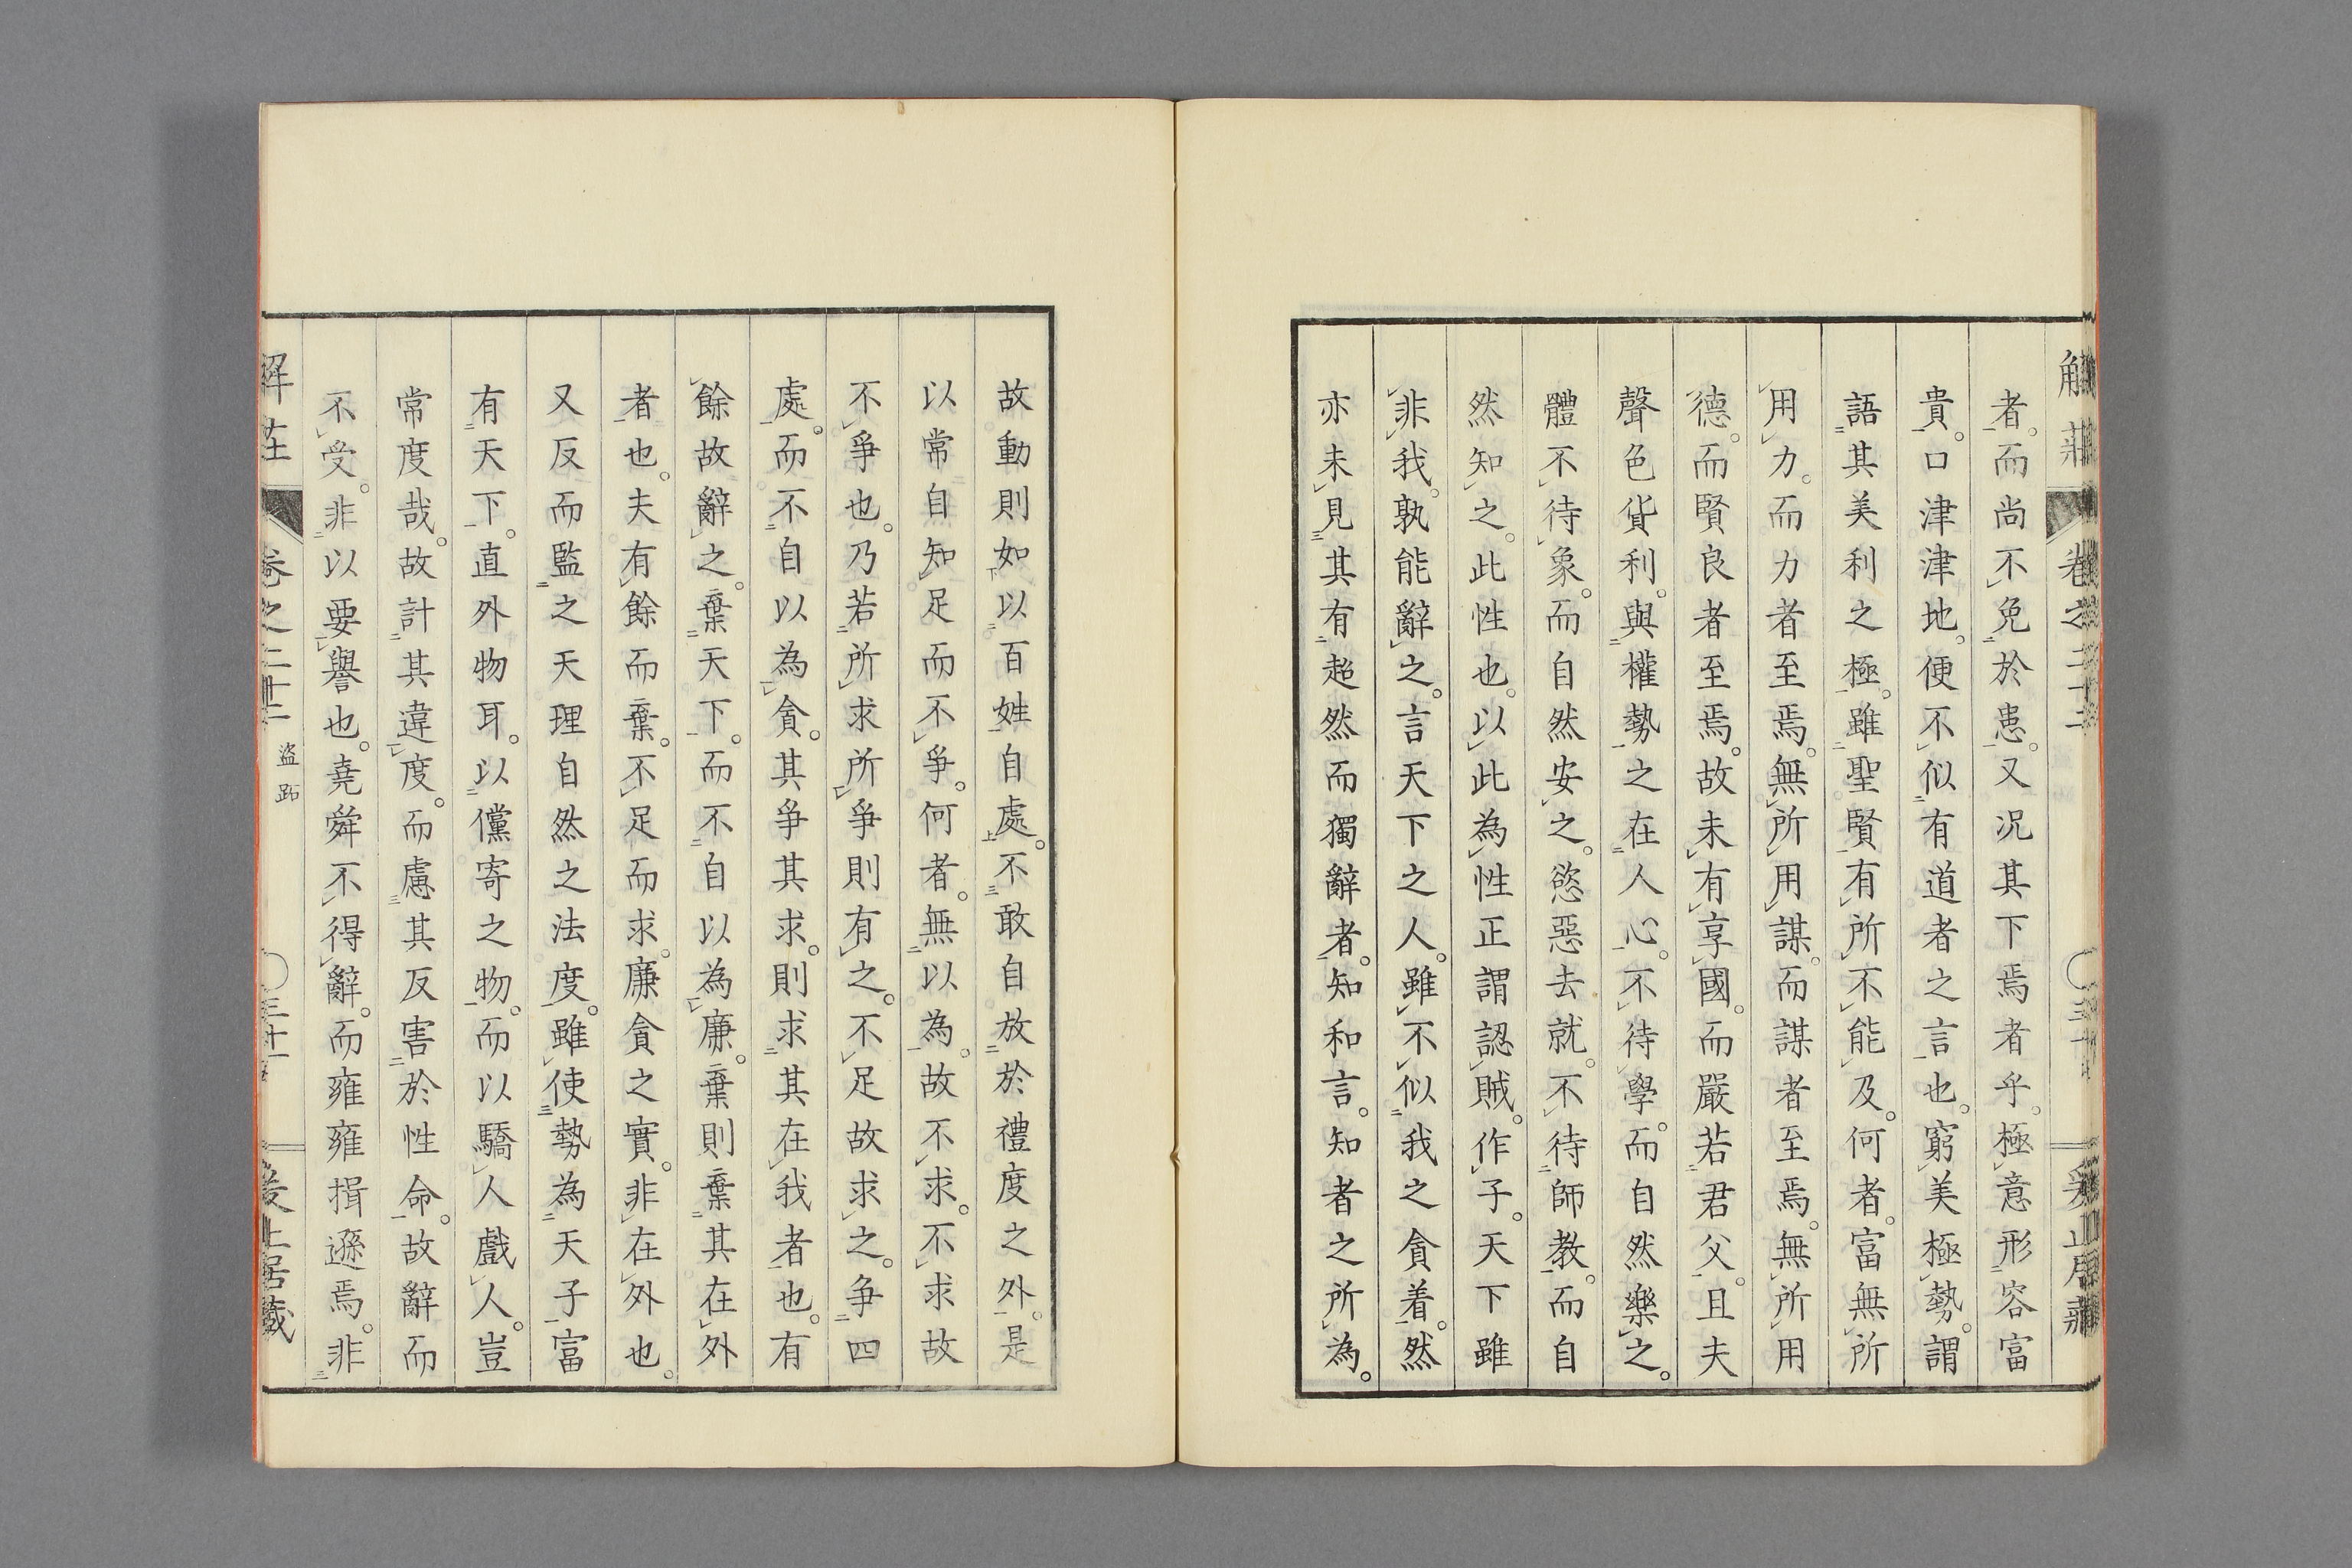 者。而尚不免於患。又況其下焉者乎。極意形容富
貴。口津津地。便不似有道者之言也。窮美極勢。謂
語其美利之極。雖聖賢有所不能及。何者。富無所
用力。而力者至焉。無所用謀。而謀者至焉。無所用
德。而賢良者至焉。故未有享國。而嚴若君父。且夫
聲色貨利。與權勢之在人心。不待學。而自然樂之。
體不待象。而自然安之。慾惡去就。不待師教。而自
然知之。此性也。以此為性正謂認賊。作子。天下雖
非我。孰能辭之。言天下之人。雖不似我之貪着。然
亦未見其有超然而獨辭者。知和言。知者之所為。
故動則如以百姓自處。不敢自放於禮度之外。是
以常自知足而不爭。何者。無以為。故不求。不求故
不爭也。乃若所求所爭則有之。不足故求之。争四
處。而不自以為貪。其爭其求。則求其在我者也。有
餘故辭之。棄天下。而不自以為廉。棄則棄其在外
者也。夫有餘而棄。不足而求。廉貪之實。非在外也。
又反而監之天理自然之法度。雖使勢為天子富
有天下。直外物耳。以儻寄之物。而以驕人戲人。豈
常度哉。故計其違度。而慮其反害於性命。故辭而
不受。非以要譽也。堯舜不得辭。而雍雍揖遜焉。非
盜跖